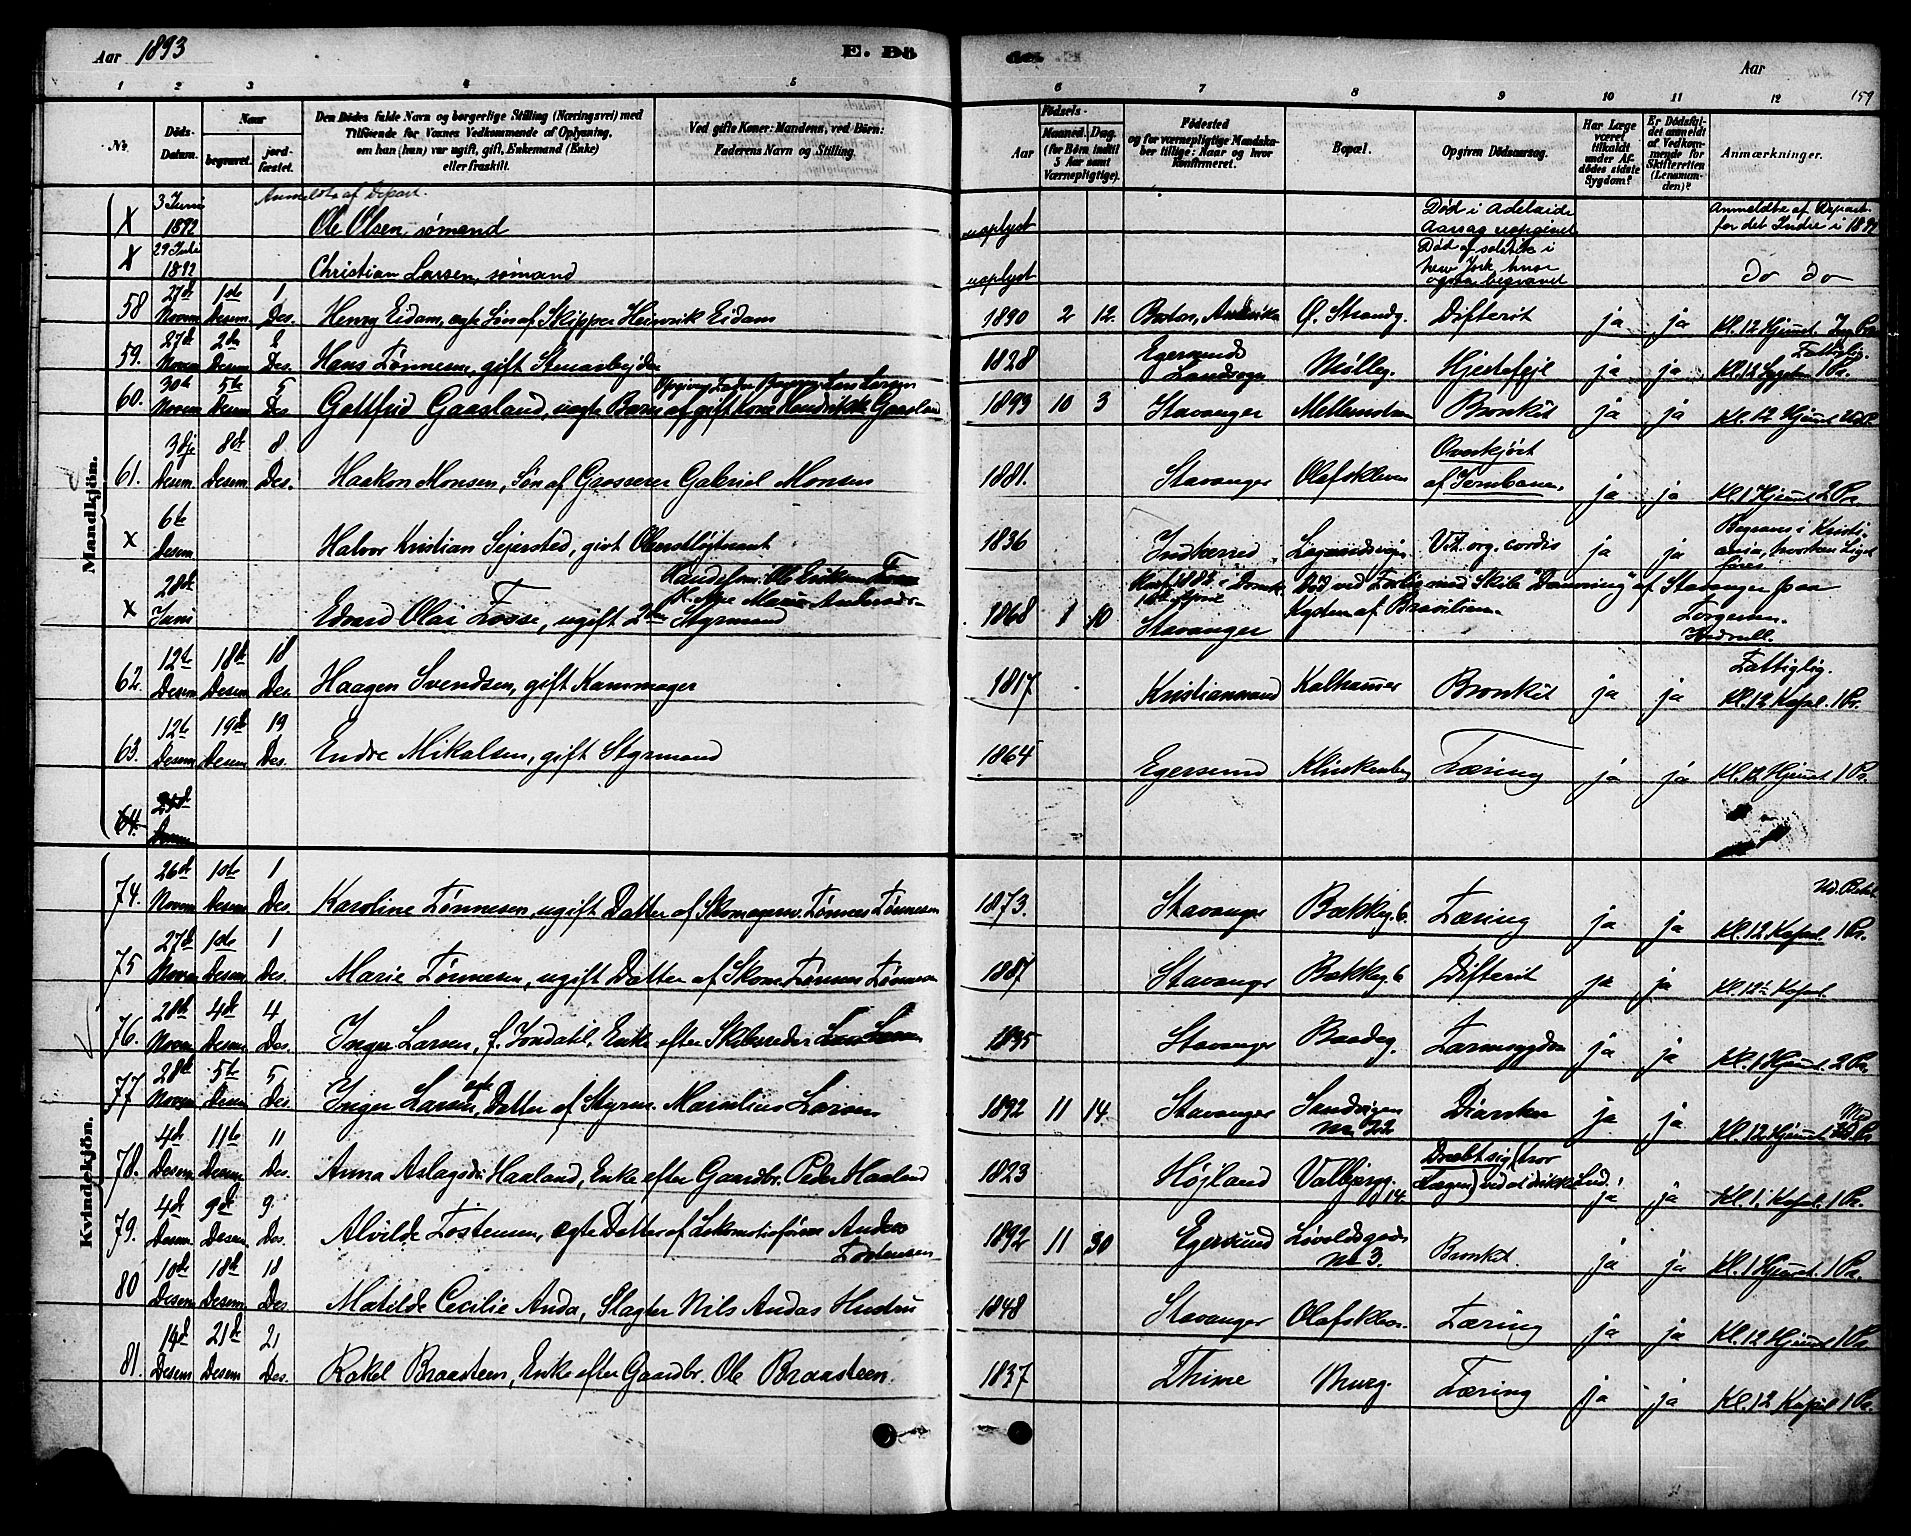 Aar 1893
E. Dö
der.
Aar
159
1 2 3 4 5 6 7 8 9 10 11 12
No.
Döds-Datum.
Naar
begravet.
jordfæstet.
Den Dödes fulde Navn og borgerlige Stilling (Næringsvei) med
Tilföiende for Voxnes Vedkommende af Oplysning,
om han (hun) var ugift, gift, Enkemand (Enke)
eller fraskilt.
Ved gifte Koner: Mandens, ved Börn:
Faderens Navn og Stilling.
Födsels-
Aar
Maaned. Dag.
(for Börn indtil
5 Aar samt
Værnepligtige).
Födested
og for værnepligtige Mandskaber
tillige: Naar og hvor
konfirmeret.
Bopæl.
Opgiven Dödsaarsag.
Har Læge
været
tilkaldt
under Afdödes
sidste
Sygdom?
Er Dödsfaldet
anmeldt
af Vedkommende
for
Skifteretten
(Lensmanden)?
Anmærkninger.
Mandkjön.
Anmeldt af Depart.
X 3 Juni 1892 Ole Olsen, sømand uoplyst Død i Adelaide Aarsag uopgivet Anmeldte af Depart. for det Indre i 1892
X 29 1892 Christian Larsen, sømand uoplyst Død af i New York, hvor ogsaa begravet do do
58 27de Novem 1ste Desem 1 Des. Henry Eidam, egte Søn af Skipper Heinrik Eidam 1890 2 12 Ø. Strandg. Difterit ja ja Kl. 12 Hjemmet
59. 27de Novem 2de Desem 2 Des. Hans Tønnesen, gift Stenarbejder 1828 Egersunds Landsogn Mølleg. Hjertefejl ja ja Fattiglig. Kl. 12 1 Pr.
60. 30te Novem 5te Desem 5 Des. Gottfrid Gaasland, uegte Barn af gift Kone Hendrikke Gaasland 1893 10 3 Stavanger Bronkit ja ja Kl. 12 Hjemmet
61. 3dje Desem 8de Desem 8 Des. Haakon Monsen, Søn af Grosserer Gabriel Monsen 1881. Stavanger Olafskleven Overkjørt af Jernbane. ja ja Kl. 1 Hjemmet 2 Pr.
X 6te Desem Halvor Kristian Sejersted, gift Oberstløjtnant 1836 Vit. org. cordis ja ja Begraves i Kristiania, hvorhen Liget føres
X 28de Juni Edvard Olai Fosse, ugift 2den Styrmand 1868 1 10 Stavanger Død ved Forlis med Skib "Dronning" af Stavanger paa Kysten af Brasilien.
62. 12te Desem 18de Desem 18 Des. Haagen Svendsen, gift Kammager 1817 Kristianssand Kalhammer Bronkit ja ja Fattiglig. Kl. 12 Kapel. 1 Pr.
63. 12te Desem 19de Desem 19 Des. Endre Mikalsen, gift Styrmand 1864 Egersund Klinkenberg Tæring ja ja Kl. 12 Hjemmet 1 Pr.
64.
Kvindekjön.
74. 26de Novem 1ste Desem 1 Des. Karoline Tønnesen, ugift Datter af Skomagersv. Tønnes Tønnesen 1873. Stavanger Bækkeg. 6. Tæring ja ja Kl. 12 Kapel. 1 Pr.
75 27de Novem 1ste Desem 1 Des. Marie Tønnesen, ugift Datter af Skom. Tønnes Tønnesen 1887 Stavanger Bækkeg. 6 Difterit ja ja Kl. 12 Kapel.
76. 28de Novem 4de Desem 4 Des. Inger Larsen, f. Jondatil, Enke efter Skibsreder Lars Larsen 1835 Stavanger Tarmsygdom ja ja Kl. 1 Hjemmet 2 Pr.
77 28de Novem 5te Desem 5 Des. Inger Larsen, egte Datter af Styrm. Marselius Larsen 1892 11 14. Stavanger Sandvigen No 22 ja ja Kl. 12 Hjemmet
78. 4de Desem 11te Desem 11 Des. Anna Aslagsdr. Haaland, Enke efter Gaardbr. Peder Haaland 1823 Højland Valbjerg. 14 Dræbt sig (tror Lægen) ved at drikke Lud. ja ja Kl. 1. Kapel. 1 Pr.
79. 4de Desem 9de Desem 9. Des. Alvilde Tostensen, egte Datter af Lokomotivfører Anders Tostensen 1892 11 30 Egersund Løvoldsgade No 3. Bronkit. ja ja Kl. 1 Hjemmet. 1 Pr.
80 10de Desem 18de Desem 18 Des. Matilde Cecilie Anda, Slagter Nils Andas Hustru 1848 Stavanger Olafskleven Tæring ja ja Kl. 12 Hjemmet 1 Pr.
81. 14de Desem 21de Desem 21 Des. Rakel Braasteen, Enke efter Gaardbr. Ole Braasteen. 1837 Thime Murg. Tæring ja ja Kl. 12 Kapel 1 Pr.